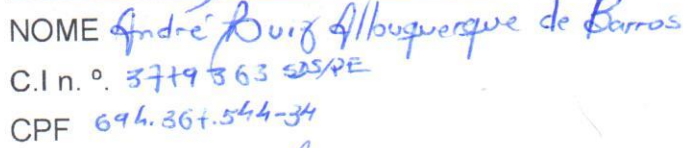 NOME André Luiz Albuquerque de Barros
C.I n. º. 3779363 SDS/PE
CPF 694.367.544-34